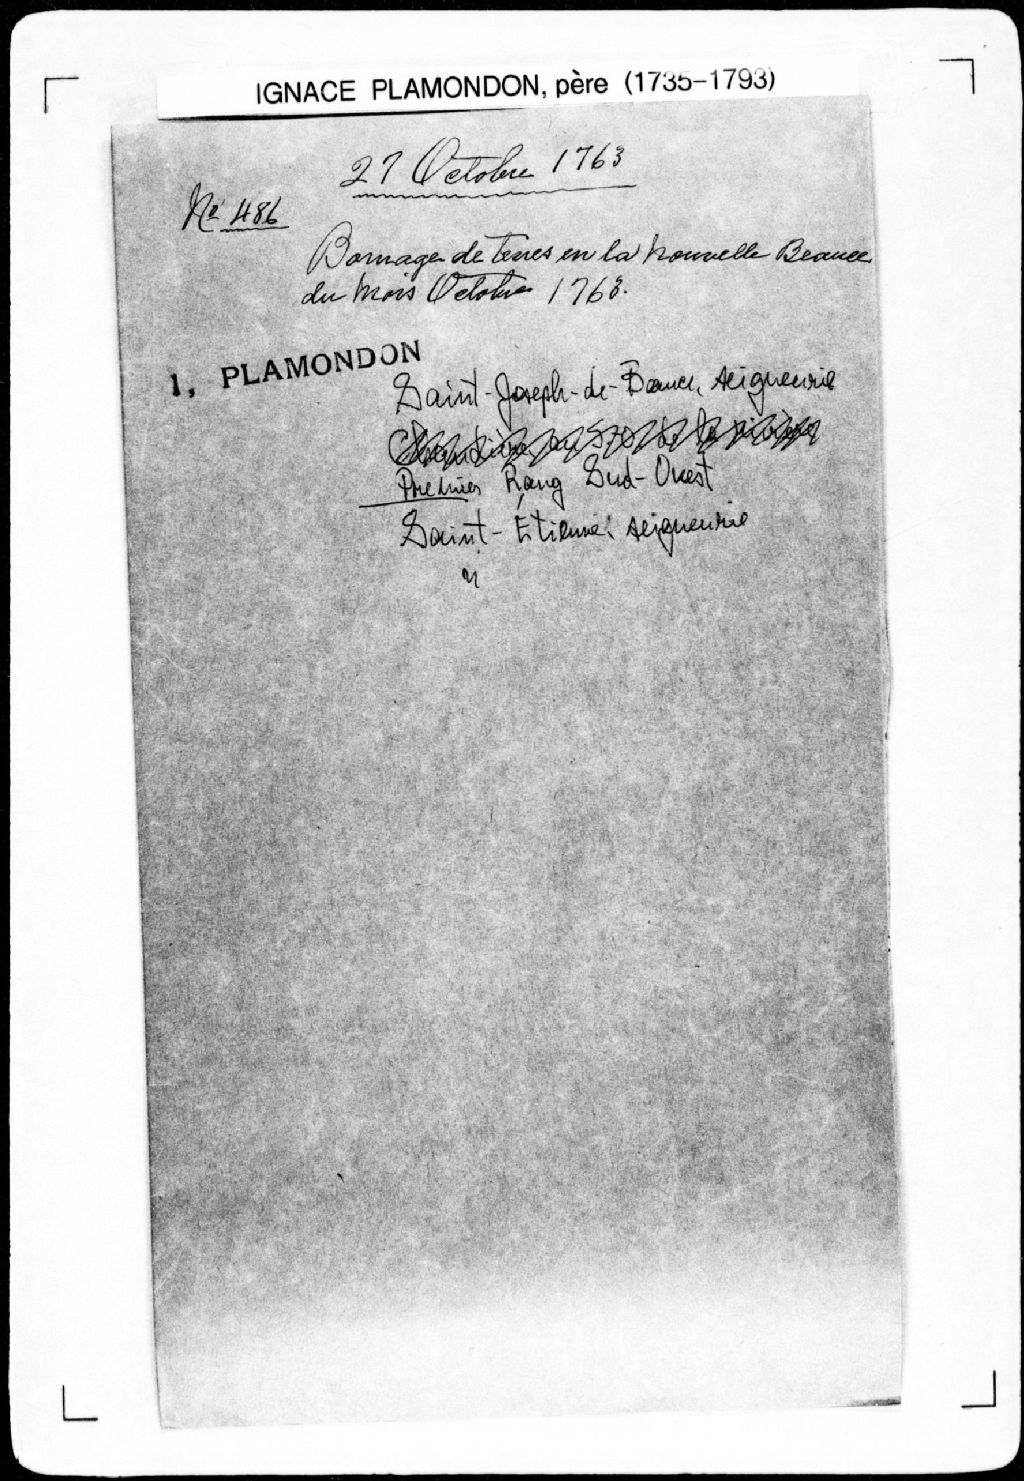 IGNACE PLAMONDON, père (1735-1793)
27 Octobre 1763
No 486
Bornage de terres en la Nouvelle Beauce
du Mois Octobre 1763.
1, PLAMONDON
Saint-Joseph-de-Beauce, seigneurie
Premier Rang Sud-Ouest
Saint-Étienne, seigneurie
"